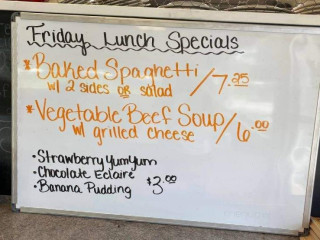 Friday Lunch Specials
*Baked Spaghetti /7.25
w/ 2 sides or salad
*Vegetable Beef Soup /6.00
w/ grilled cheese
•Strawberry YumYum
•Chocolate Eclaire
•Banana Pudding $3.00